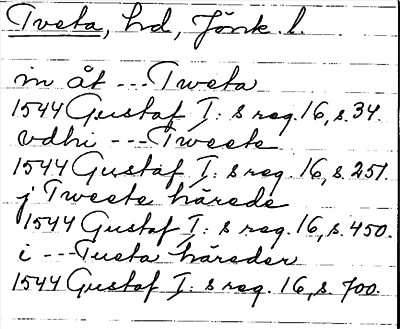 Tveta, hd, Jönk. l.
in åt --- Tweta
1544 Gustaf I:s reg. 16, s. 34.
vdhi --- Tweete
1544 Gustaf I:s reg. 16, s. 251.
j Tweete härede
1544 Gustaf I:s reg. 16, s. 450.
i --- Tueta häreder
1544 Gustaf I:s reg. 16, s. 700.